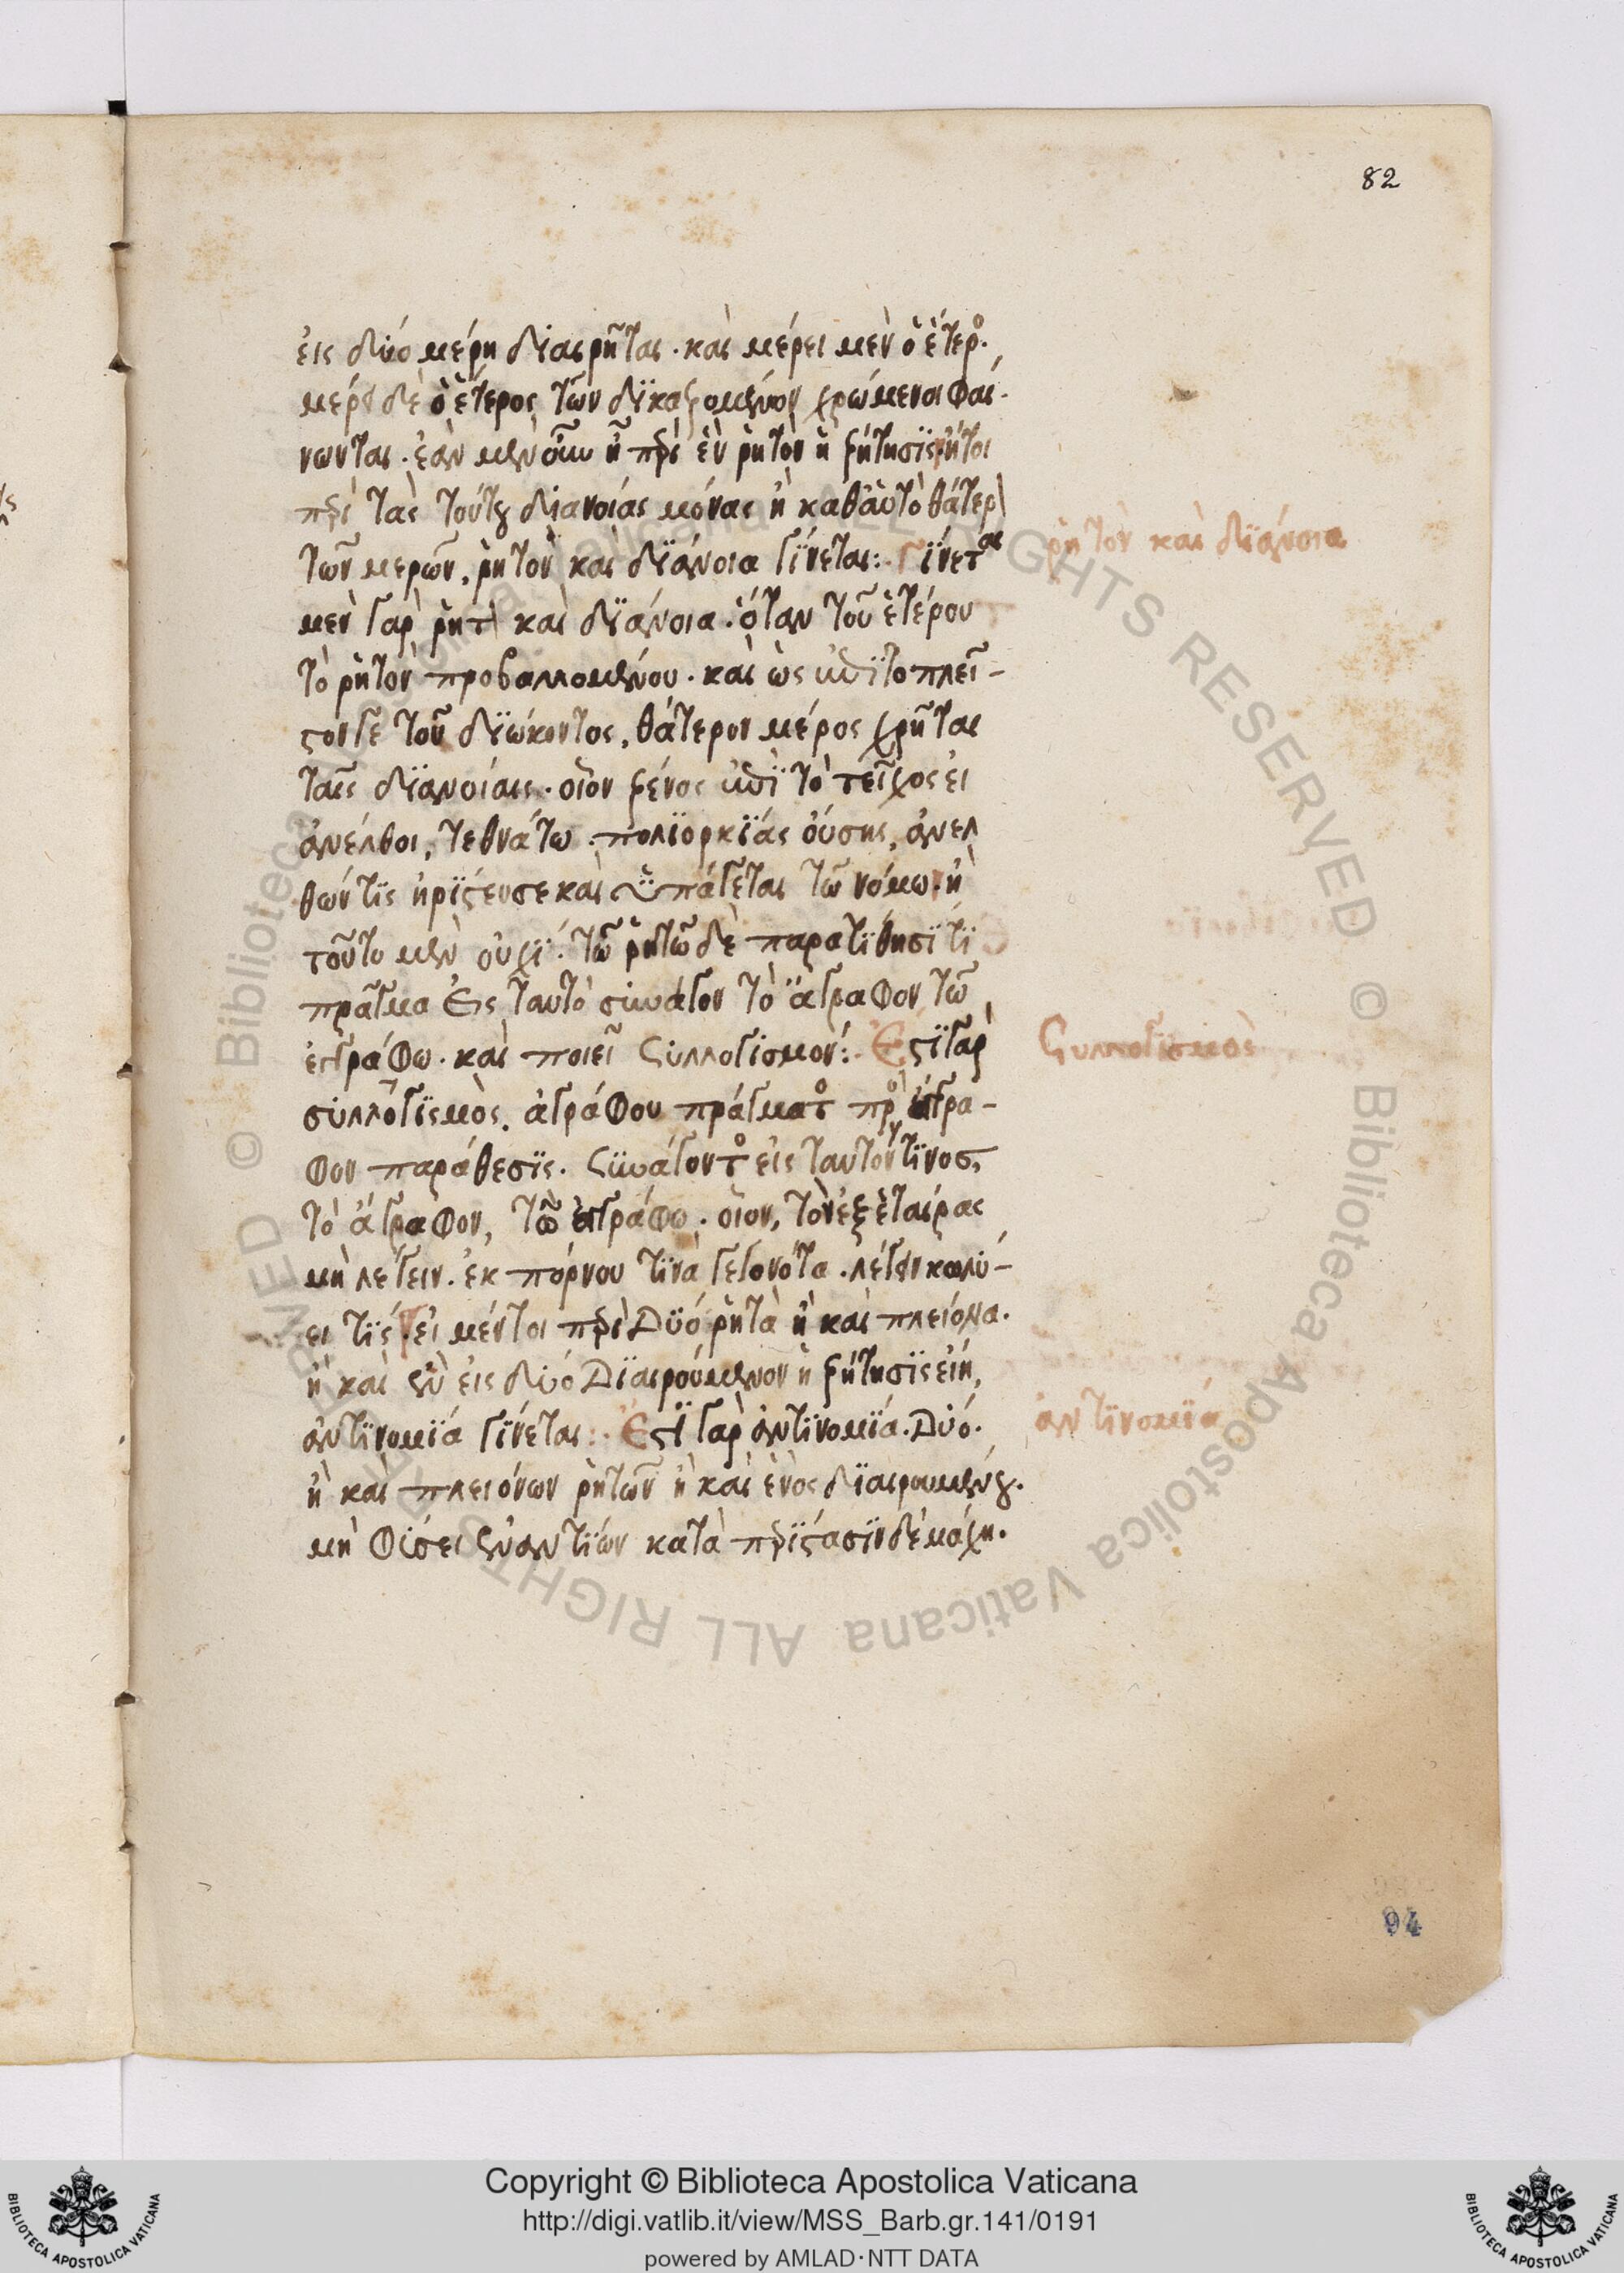 82
εἰς δύο μέρη διαιρῆται · καὶ μέρει μὲν ὁ ἕτερος ·
μέρει δὲ ὁ ἕτερος τῶν δϊκαζομένων χρώμενοι φαί-
νωνται · ἐὰν μὲν οὖν ἢ περὶ ἓν ῥητὸν ἡ ζήτησϊς ἤτοι
περὶ τὰς τούτου διανοίας μόνας ἢ καθ' αὑτὸ θάτερον
τῶν μερῶν, ῥητὸν καὶ δϊάνοια γίνεται :· Γίνεται
μὲν γὰρ ῥητὸν καὶ δϊάνοια · ὅταν τοῦ ἑτέρου
τὸ ῥητὸν προβαλλομένου · καὶ ὡς ἐπὶ τὸ πλεῖ-
στόν γε τοῦ δϊώκοντος, θάτερον μέρος χρῆται
ταῖς δϊανοίαις · οἷον ξένος ἐπὶ τὸ τεῖχος εἰ
ἀνέλθοι, τεθνάτω · πολϊορκϊάς οὔσης, ἀνελ
θών τϊς ἠρίστευσε καὶ ὑπάγεται τῷ νόμω · ἢ
τοῦτο μὲν οὐχί · τῷ ῥητῷ δὲ παρατίθησί τϊ
πρᾶγμα εἰς ταυτὸ συνάγον τὸ ἄγραφον τῷ
ἐγγράφω · καὶ ποιεῖ συλλογισμόν :· Ἔστϊ γὰρ
συλλογϊσμὸς, ἀγράφου πράγματος πρὸς ἔγγρα-
φον παράθεσϊς · συνάγοντος εἰς ταυτόν τϊνος,
τὸ ἄγραφον, τῷ ἐγγράφω · οἷον, τὸν ἐξ ἑταίρας
μὴ λέγειν · ἐκ πόρνου τϊνὰ γεγονότα · λέγειν κωλύ-
ει τϊς · εἰ μέντοι περὶ δϋό ῥητὰ ἢ καὶ πλείονα ·
ἢ καὶ ἓν εἰς δύο δϊαιρούμενον ἡ ζήτησϊς εἴη,
ἀντϊνομϊά γίνεται :· Ἔστϊ γὰρ ἀντϊνομϊά · δύο ·
ἢ καὶ πλειόνων ῥητῶν ἢ καὶ ἑνὸς δϊαιρουμένου ·
μὴ φύσει ἐναντίων κατὰ περίστασϊν δὲ μάχη ·
ῥητὸν καὶ δϊάνοια
συλλογϊσμὸς
ἀντϊνομϊά
94
Copyright © Biblioteca Apostolica Vaticana
http://digi.vatlib.it/view/MSS_Barb.gr.141/0191
powered by AMLAD·NTT DATA
BIBLIOTECA APOSTOLICA VATICANA
BIBLIOTECA APOSTOLICA VATICANA